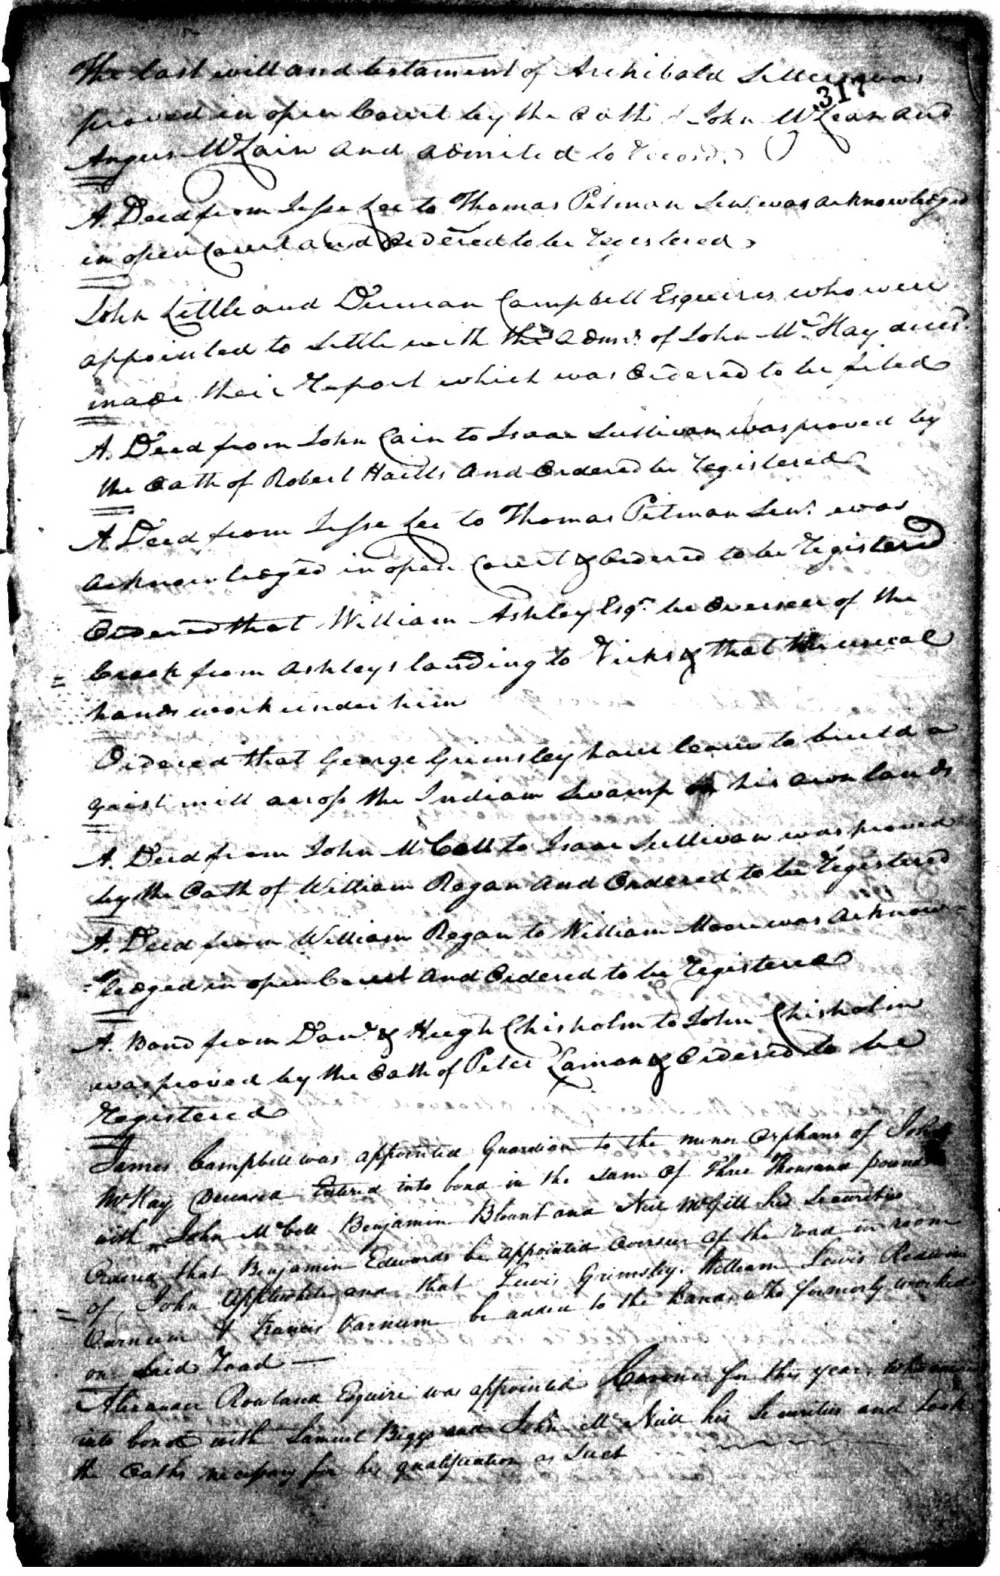 317
The last will and testament of Archibald was
proved in open Court by the Oath of John McLean and
Angus McLain and admited to record
A Deed from Jesse Lee to Thomas Pitman Senr. was acknowledged
in open Court and Ordered to be registered
John Little and Duncan Campbell Esquires who were
appointed to settle with the admr. of John McKay decsd.
made their report which was Ordered to be filed
A Deed from John Cain to Isaac Sullivan was proved by
the Oath of Robert and Ordered be registered
A Deed from Jesse Lee to Thomas Pitman Senr. was
acknowledged in open Court & Ordered to be registered
Ordered that William Ashley Esqr. be Overseer of the
Creek from Ashleys landing to & that the usual
hands work under him
Ordered that George Grimsley have leave to build a
grist mill across the Indian Swamp on his own lands
A Deed from John McCall to Isaac Sullivan was proved
by the Oath of William Rogan and Ordered to be registered
A Deed from William Rogan to William Moore was acknow-
=ledged in open Court and Ordered to be registered
A Bond from Danl. & Hugh Chisholm to John Chisholm
was proved by the Oath of Peter Lamon & Ordered to be
registered
James Campbell was appointed Guardian to the minor Orphans of John
McKay Deceased Entered into bond in the sum of three Thousand pounds
with John McCall Benjamin Blount and Neil McGill his Securities
Ordered that Benjamin Edwards be appointed Overseer of the road in room
of John Applewhite and that Lewis Grimsley William Lewis
& Francis Varnum be added to the hands who formerly worked
on said road —
Alexander Rowland Esquire was appointed Coroner for this year
into bond with Samuel Biggs and John McNeill his Securities and took
the Oaths necessary for his qualification as Such